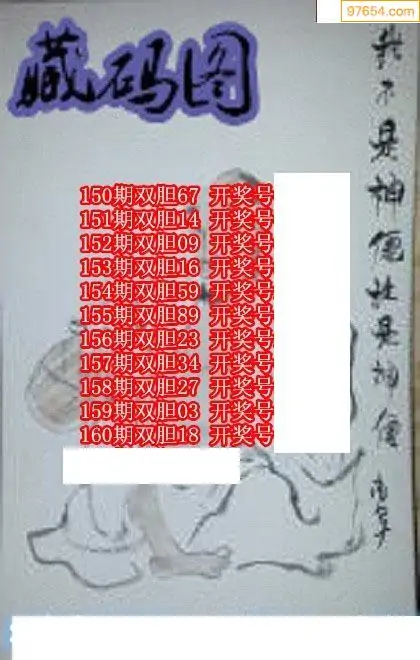 97654.com
藏码图
我不是神是神
150期双胆67 开奖号
151期双胆14 开奖号
152期双胆09 开奖号
153期双胆16 开奖号
154期双胆59 开奖号
155期双胆89 开奖号
156期双胆23 开奖号
157期双胆34 开奖号
158期双胆27 开奖号
159期双胆03 开奖号
160期双胆18 开奖号